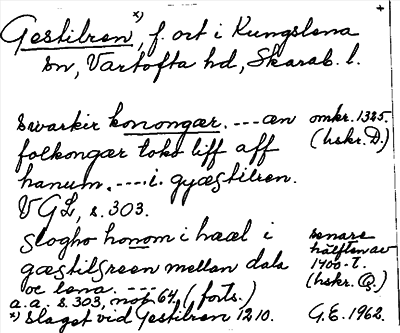 Gestilren, *) f. ort i Kungslena +
sn, Vartofta hd, Skarab. l.
swarkir konongær. --- æn omkr. 1325.
folkongær toko liff aff (hskr. D.)
hanum. ---- i gyæstilren.
VGL, s. 303.
slogho honom i hææl i senare
gæstilsreen mellan dala hälften av
oc lena. --- 1400-t.
a.a. s. 303, not 64, (forts.) (hskr. Q.)
*) slaget vid Gestilren 1210. G.E. 1962.